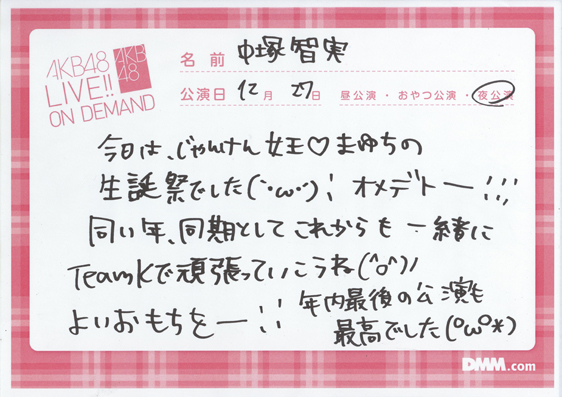 AKB48
LIVE!!
ON DEMAND
AKB
48
名前 中塚智実
公演日 12月 27日 昼公演・おやつ公演・夜公演
今日は、じゃんけん女王♡まゆちの
生誕祭でした(´･ω･`)! オメデトー!!!
同い年、同期としてこれからも一緒に
TeamKで頑張っていこうね(^o^)ﾉ
よいおもちをー!!
年内最後の公演も
最高でした(°ω°*)
DMM.com